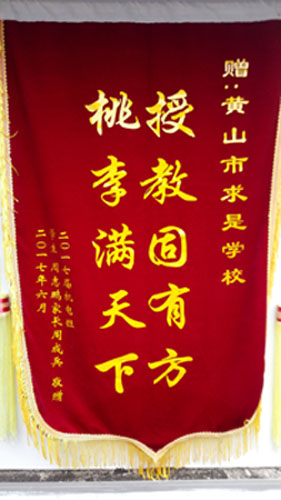 赠:黄山市求是学校
授教固有方
桃李满天下
二〇一七届机电班
学生 周志鹏家长周成兵 敬赠
二〇一七年六月